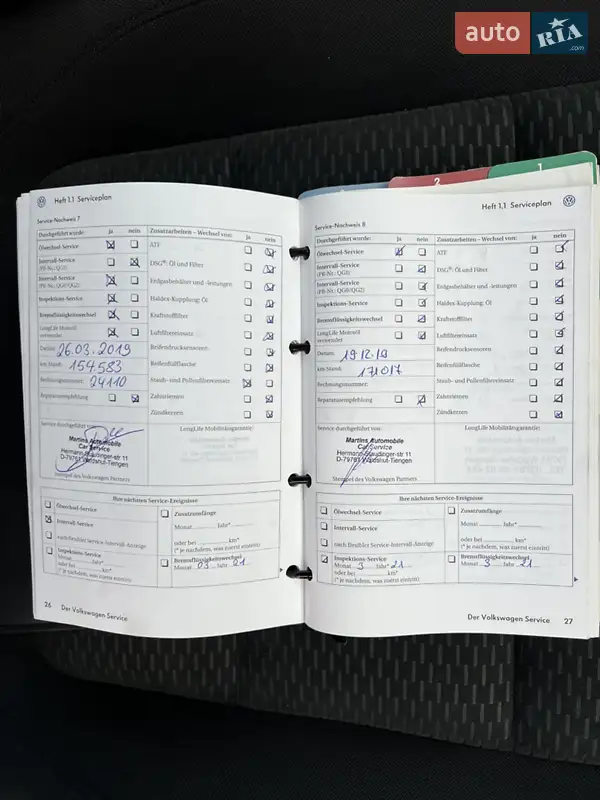 auto RIA .com
2
1
Heft 1.1 Serviceplan
Service-Nachweis 7
Durchgeführt wurde: ja nein
Zusatzarbeiten – Wechsel von: ja nein
Ölwechsel-Service
ATF
Intervall-Service
(PR-Nr. QG1)
DSG®: Öl und Filter
Intervall-Service
(PR-Nr. QG0/QG2)
Erdgasbehälter und -leitungen
Inspektions-Service
Haldex-Kupplung: Öl
Bremsflüssigkeitswechsel
Kraftstofffilter
LongLife Motoröl
verwendet
Luftfiltereinsatz
Datum: 26.03.2019
Reifendrucksensoren
km-Stand: 154.583
Reifenfüllflasche
Rechnungsnummer: 24110
Staub- und Pollenfiltereinsatz
Reparaturempfehlung
Zahnriemen
Zündkerzen
Service durchgeführt von:
LongLife Mobilitätsgarantie:
Martins Automobile
Car Service
Hermann-Staudinger-str 11
D-79761 Waldshut-Tiengen
Stempel des Volkswagen Partners
Ihre nächsten Service-Ereignisse
Ölwechsel-Service
Zusatzumfänge
Intervall-Service
Monat Jahr*
nach flexibler Service-Intervall-Anzeige
oder bei km*
(* je nachdem, was zuerst eintritt)
Inspektions-Service
Monat Jahr*
oder bei km*
(* je nachdem, was zuerst eintritt)
Bremsflüssigkeitswechsel
Monat 03 Jahr 21
26 Der Volkswagen-Service
Heft 1.1 Serviceplan
Service-Nachweis 8
Durchgeführt wurde: ja nein
Zusatzarbeiten – Wechsel von: ja nein
Ölwechsel-Service
ATF
Intervall-Service
(PR-Nr. QG1)
DSG®: Öl und Filter
Intervall-Service
(PR-Nr. QG0/QG2)
Erdgasbehälter und -leitungen
Inspektions-Service
Haldex-Kupplung: Öl
Bremsflüssigkeitswechsel
Kraftstofffilter
LongLife Motoröl
verwendet
Luftfiltereinsatz
Datum: 19.12.19
Reifendrucksensoren
km-Stand: 171017
Reifenfüllflasche
Rechnungsnummer:
Staub- und Pollenfiltereinsatz
Reparaturempfehlung
Zahnriemen
Zündkerzen
Service durchgeführt von:
LongLife Mobilitätsgarantie:
Martins Automobile
Car Service
Hermann-Staudinger-str 11
D-79761 Waldshut-Tiengen
Stempel des Volkswagen Partners
Ihre nächsten Service-Ereignisse
Ölwechsel-Service
Zusatzumfänge
Intervall-Service
Monat Jahr*
nach flexibler Service-Intervall-Anzeige
oder bei km*
(* je nachdem, was zuerst eintritt)
Inspektions-Service
Monat 3 Jahr* 21
oder bei km*
(* je nachdem, was zuerst eintritt)
Bremsflüssigkeitswechsel
Monat 3 Jahr 21
Der Volkswagen Service 27